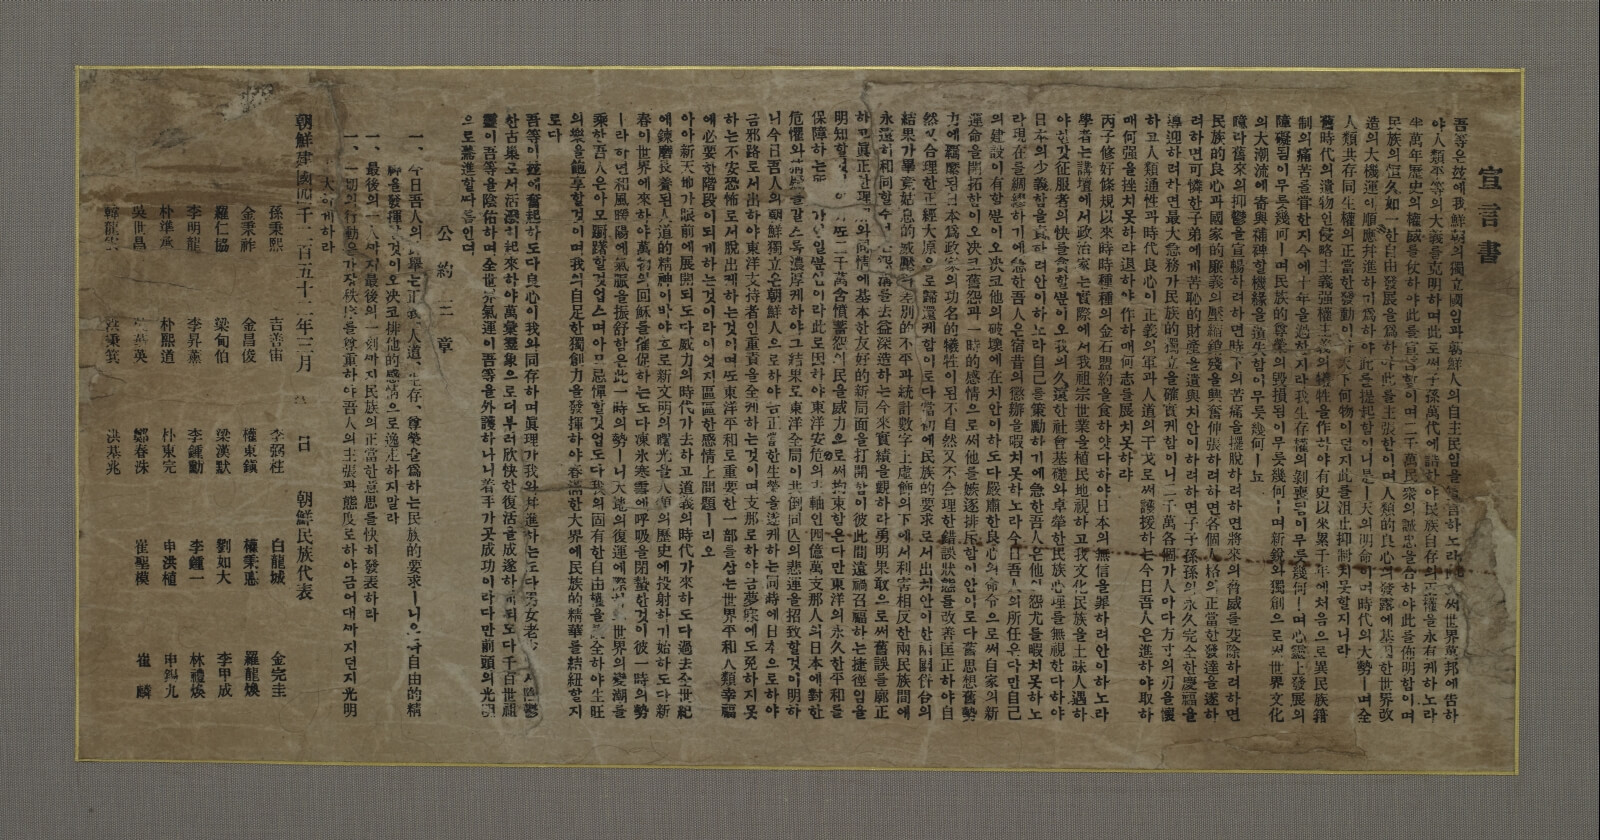 宣言書
吾等은玆에我鮮朝의獨立國임과朝鮮人의自主民임을宣言하노라此로써世界萬邦에告하
야人類平等의大義를克明하며此로써子孫萬代에誥하야民族自存의正權을永有케하노라
半萬年歷史의權威를仗하야此를宣言함이며二千萬民衆의誠忠을合하야此를佈明함이며
民族의恒久如一한自由發展을爲하야此를主張함이며人類的良心의發露에基因한世界改
造의大機運에順應幷進하기爲하야此를提起함이니是ㅣ天의明命이며時代의大勢ㅣ며全
人類共存同生權의正當한發動이라天下何物이던지此를沮止抑制치못할지니라
舊時代의遺物인侵略主義强權主義의犧牲을作하야有史以來累千年에처음으로異民族箝
制의痛苦를嘗한지今에十年을過한지라我生存權의剝喪됨이무릇幾何ㅣ며心靈上發展의
障礙됨이무릇幾何ㅣ며民族的尊榮의毁損됨이무릇幾何ㅣ며新銳와獨創으로써世界文化
의大潮流에寄與補裨할機緣을遺失함이무릇幾何ㅣ뇨
噫라舊來의抑鬱을宣暢하려하면時下의苦痛을擺脫하려하면將來의脅威를芟除하려하면
民族的良心과國家的廉義의壓縮銷殘을興奮伸張하려하면各個人格의正當한發達을遂하
려하면可憐한子弟에게苦恥的財產을遺與치안이하려하면子子孫孫의永久完全한慶福을
導迎하려하면最大急務가民族的獨立을確實케함이니二千萬各個가人마다方寸의刃을懷
하고人類通性과時代良心이正義의軍과人道의干戈로써護援하는今日吾人은進하야取하
매何强을挫치못하랴退하야作하매何志를展치못하랴
丙子修好條規以來時時種種의金石盟約을食하얏다하야日本의無信을罪하려안이하노라
學者는講壇에서政治家는實際에서我祖宗世業을植民地視하고我文化民族을土昧人遇하
야한갓征服者의快를貪할뿐이오我의久遠한社會基礎와卓犖한民族心理를無視한다하야
日本의少義함을責하려안이하노라自己를策勵하기에急한吾人은他의怨尤를暇치못하노
라現在를綢繆하기에急한吾人은宿昔의懲辨을暇치못하노라今日吾人의所任은다만自己
의建設이有할뿐이오決코他의破壞에在치안이하도다嚴肅한良心의命令으로써自家의新
運命을開拓함이오決코舊怨과一時的感情으로써他를嫉逐排斥함이안이로다舊思想舊勢
力에羈縻된日本爲政家의功名的犧牲이된不自然又不合理한錯誤狀態를改善匡正하야自
然又合理한正經大原으로歸還케함이로다當初에民族的要求로서出치안이한兩國倂合의
結果가畢竟姑息的威壓과差別的不平과統計數字上虛飾의下에서利害相反한兩民族間에
永遠히和同할수업는怨溝를去益深造하는今來實績을觀하라勇明果敢으로써舊誤를廓正
하고眞正한理解와同情에基本한友好的新局面을打開함이彼此間遠禍召福하는捷徑임을
明知할것안인가또二千萬含憤蓄怨의民을威力으로써拘束함은다만東洋의永久한平和를
保障하는所以가안일뿐안이라此로因하야東洋安危의主軸인四億萬支那人의日本에對한
危懼와猜疑를갈스록濃厚케하야그結果로東洋全局이共倒同亡의悲運을招致할것이明하
니今日吾人의朝鮮獨立은朝鮮人으로하야금正當한生榮을遂케하는同時에日本으로하야
금邪路로서出하야東洋支持者인重責을全케하는것이며支那로하야금夢寐에도免하지못
하는不安恐怖로서脫出케하는것이며또東洋平和로重要한一部를삼는世界平和人類幸福
에必要한階段이되게하는것이라이엇지區區한感情上問題ㅣ리오
아아新天地가眼前에展開되도다威力의時代가去하고道義의時代가來하도다過去全世紀
에鍊磨長養된人道的精神이바야흐로新文明의曙光을人類의歷史에投射하기始하도다新
春이世界에來하야萬物의回穌를催促하는도다凍氷寒雪에呼吸을閉蟄한것이彼一時의勢
ㅣ라하면和風暖陽에氣脈을振舒함은此一時의勢ㅣ니天地의復運에際하고世界의變潮를
乘한吾人은아모躕躇할것업스며아모忌憚할것업도다我의固有한自由權을護全하야生旺
의樂을飽享할것이며我의自足한獨創力을發揮하야春滿한大界에民族的精華를結紐할지
로다
吾等이玆에奮起하도다良心이我와同存하며眞理가我와幷進하는도다男女老少업시陰鬱
한古巢로서活潑히起來하야萬彙羣象으로더부러欣快한復活을成遂하게되도다千百世祖
靈이吾等을陰佑하며全世界氣運이吾等을外護하나니着手가곳成功이라다만前頭의光明
으로驀進할따름인뎌
公約三章
一、今日吾人의此擧는正義、人道、生存、尊榮을爲하는民族的要求ㅣ니오즉自由的精
神을發揮할것이오決코排他的感情으로逸走하지말라
一、最後의一人까지最後의一刻까지民族의正當한意思를快히發表하라
一、一切의行動은가장秩序를尊重하야吾人의主張과態度로하야금어대까지던지光明
正大하게하라
朝鮮建國四千二百五十二年三月 日 朝鮮民族代表
孫秉熙 吉善宙 李弼柱 白龍城 金完圭
金秉祚 金昌俊 權東鎭 權秉悳 羅龍煥
羅仁協 梁甸伯 梁漢默 劉如大 李甲成
李明龍 李昇薰 李鍾勳 李鍾一 林禮煥
朴準承 朴熙道 朴東完 申洪植 申錫九
吳世昌 吳華英 鄭春洙 崔聖模 崔麟
韓龍雲 洪秉箕 洪基兆